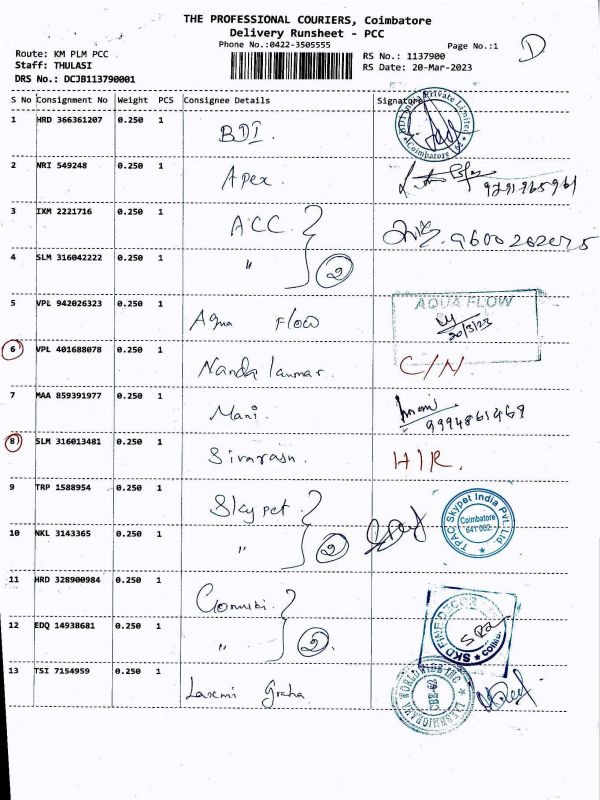 THE PROFESSIONAL COURIERS, Coimbatore
Delivery Runsheet - PCC
Phone No.:0422-3505555
Page No.:1
D
Route: KM PLM PCC
Staff: THULASI
DRS No.: DCJB113790001
RS No.: 1137900
RS Date: 20-Mar-2023
S No Consignment No Weight PCS Consignee Details Signature
1 HRD 366361207 0.250 1 BDI
Private Limited Coimbatore
2 NRI 549248 0.250 1 Apex.
3 IXM 2221716 0.250 1 ACC.
4 SLM 316042222 0.250 1 " 2
5 VPL 942026323 0.250 1 Aqua Flow AQUA FLOW
20/3/23
6 VPL 401688078 0.250 1 Nanda C/N
7 MAA 859391977 0.250 1 Mani. mani
9994861469
8 SLM 316013481 0.250 1 H/R.
9 TRP 1588954 0.250 1 Skypet
TPAC Skypet India Pvt. Ltd.
Coimbatore
641 002
10 NKL 3143365 0.250 1 " 2
11 HRD 328900984 0.250 1
12 EDQ 14938681 0.250 1 " 2
SKD FINE DECOR
13 TSI 7154959 0.250 1 Laxmi Graha